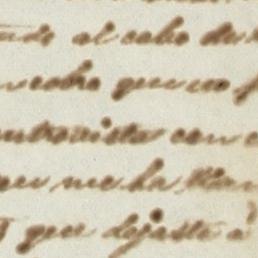 al cabo de
que no
entrevista con
que me ha
que dejaste á